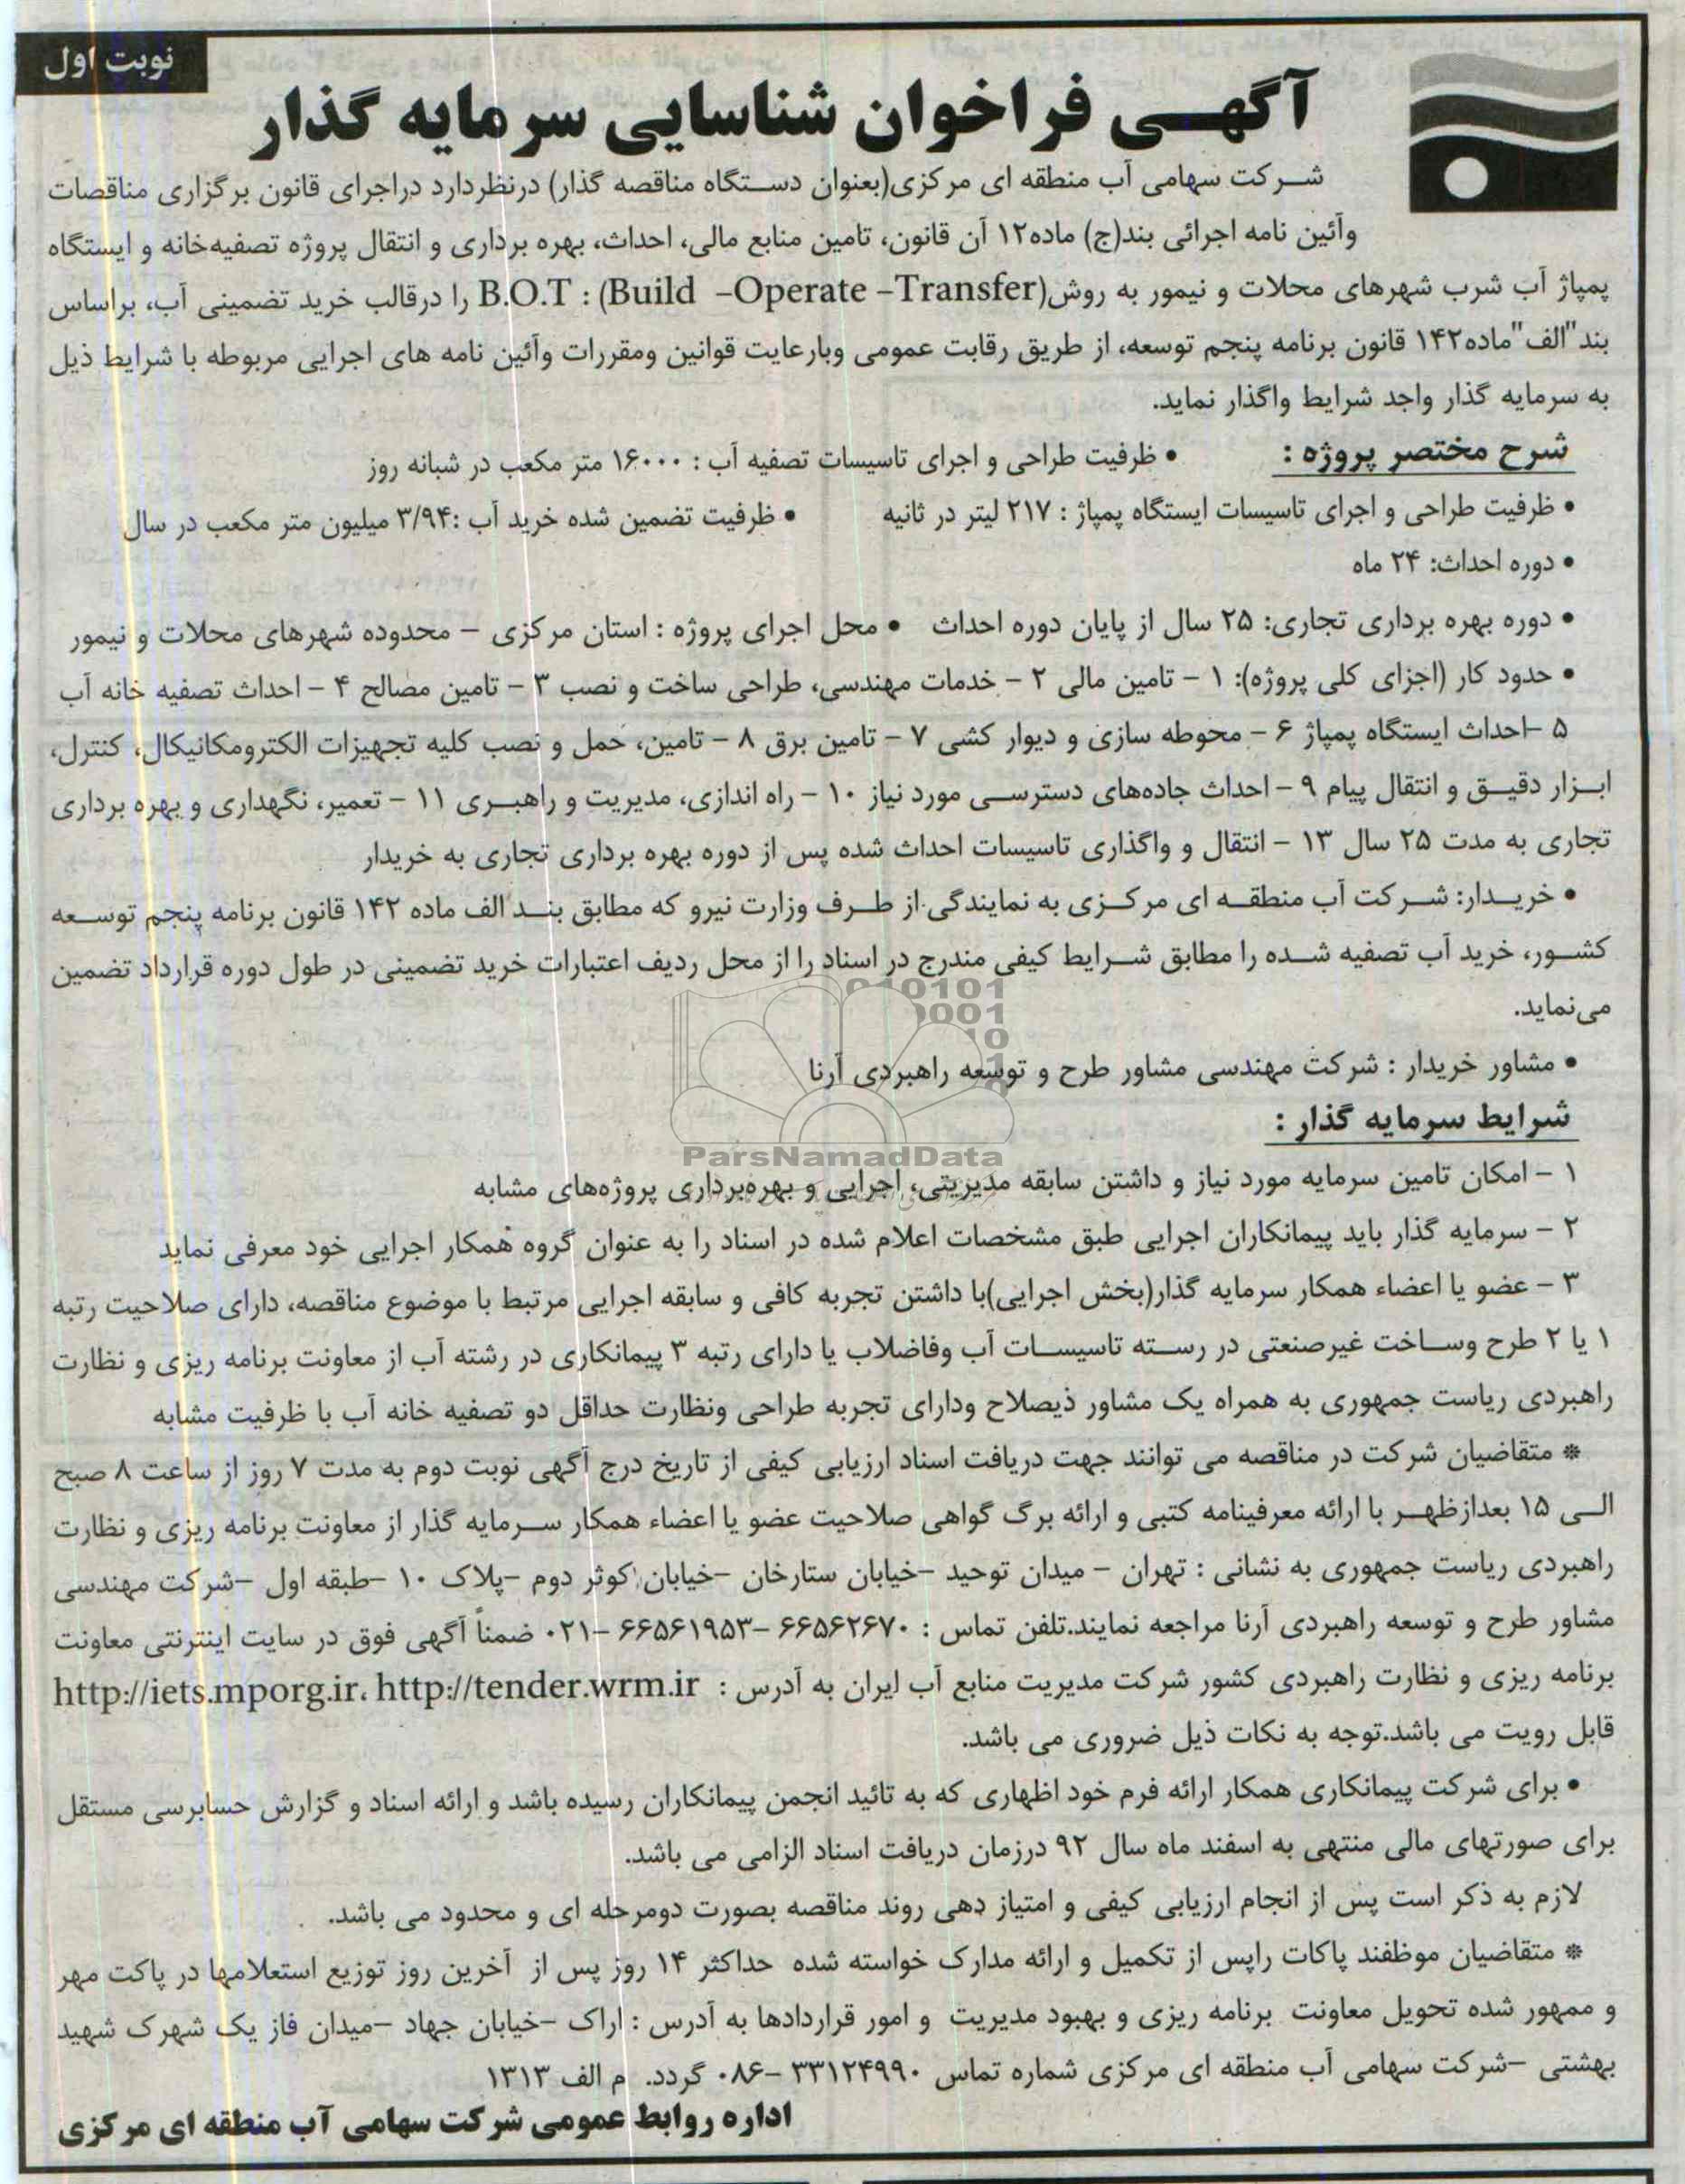 نوبت اول
آگهی فراخوان شناسایی سرمایه گذار
شرکت سهامی آب منطقه ای مرکزی(بعنوان دستگاه مناقصه گذار) درنظردارد دراجرای قانون برگزاری مناقصات
وآئین نامه اجرائی بند(ج) ماده۱۲ آن قانون، تامین منابع مالی، احداث، بهره برداری و انتقال پروژه تصفیه‌خانه و ایستگاه
پمپاژ آب شرب شهرهای محلات و نیمور به روش(B.O.T : (Build –Operate –Transfer را درقالب خرید تضمینی آب، براساس
بند"الف"ماده۱۴۲ قانون برنامه پنجم توسعه، از طریق رقابت عمومی وبارعایت قوانین ومقررات وآئین نامه های اجرایی مربوطه با شرایط ذیل
به سرمایه گذار واجد شرایط واگذار نماید.
شرح مختصر پروژه : • ظرفیت طراحی و اجرای تاسیسات تصفیه آب : ۱۶۰۰۰ متر مکعب در شبانه روز
• ظرفیت طراحی و اجرای تاسیسات ایستگاه پمپاژ : ۲۱۷ لیتر در ثانیه • ظرفیت تضمین شده خرید آب :۳/۹۴ میلیون متر مکعب در سال
• دوره احداث: ۲۴ ماه
• دوره بهره برداری تجاری: ۲۵ سال از پایان دوره احداث • محل اجرای پروژه : استان مرکزی – محدوده شهرهای محلات و نیمور
• حدود کار (اجزای کلی پروژه): ۱ – تامین مالی ۲ – خدمات مهندسی، طراحی ساخت و نصب ۳ – تامین مصالح ۴ – احداث تصفیه خانه آب
۵ –احداث ایستگاه پمپاژ ۶ – محوطه سازی و دیوار کشی ۷ – تامین برق ۸ – تامین، حمل و نصب کلیه تجهیزات الکترومکانیکال، کنترل،
ابزار دقیق و انتقال پیام ۹ – احداث جاده‌های دسترسی مورد نیاز ۱۰ – راه اندازی، مدیریت و راهبری ۱۱ – تعمیر، نگهداری و بهره برداری
تجاری به مدت ۲۵ سال ۱۳ – انتقال و واگذاری تاسیسات احداث شده پس از دوره بهره برداری تجاری به خریدار
• خریدار: شرکت آب منطقه ای مرکزی به نمایندگی از طرف وزارت نیرو که مطابق بند الف ماده ۱۴۲ قانون برنامه پنجم توسعه
کشور، خرید آب تصفیه شده را مطابق شرایط کیفی مندرج در اسناد را از محل ردیف اعتبارات خرید تضمینی در طول دوره قرارداد تضمین
می‌نماید.
• مشاور خریدار : شرکت مهندسی مشاور طرح و توسعه راهبردی آرنا
شرایط سرمایه گذار :
ParsNamadData
۱ – امکان تامین سرمایه مورد نیاز و داشتن سابقه مدیریتی، اجرایی و بهره‌برداری پروژه‌های مشابه
۲ – سرمایه گذار باید پیمانکاران اجرایی طبق مشخصات اعلام شده در اسناد را به عنوان گروه همکار اجرایی خود معرفی نماید
۳ – عضو یا اعضاء همکار سرمایه گذار(بخش اجرایی)با داشتن تجربه کافی و سابقه اجرایی مرتبط با موضوع مناقصه، دارای صلاحیت رتبه
۱ یا ۲ طرح وساخت غیرصنعتی در رسته تاسیسات آب وفاضلاب یا دارای رتبه ۳ پیمانکاری در رشته آب از معاونت برنامه ریزی و نظارت
راهبردی ریاست جمهوری به همراه یک مشاور ذیصلاح ودارای تجربه طراحی ونظارت حداقل دو تصفیه خانه آب با ظرفیت مشابه
* متقاضیان شرکت در مناقصه می توانند جهت دریافت اسناد ارزیابی کیفی از تاریخ درج آگهی نوبت دوم به مدت ۷ روز از ساعت ۸ صبح
الی ۱۵ بعدازظهر با ارائه معرفینامه کتبی و ارائه برگ گواهی صلاحیت عضو یا اعضاء همکار سرمایه گذار از معاونت برنامه ریزی و نظارت
راهبردی ریاست جمهوری به نشانی : تهران – میدان توحید –خیابان ستارخان –خیابان کوثر دوم –پلاک ۱۰ –طبقه اول –شرکت مهندسی
مشاور طرح و توسعه راهبردی آرنا مراجعه نمایند.تلفن تماس : ۶۶۵۶۲۶۷۰ –۶۶۵۶۱۹۵۳ –۰۲۱ ضمناً آگهی فوق در سایت اینترنتی معاونت
برنامه ریزی و نظارت راهبردی کشور شرکت مدیریت منابع آب ایران به آدرس : http://iets.mporg.ir، http://tender.wrm.ir
قابل رویت می باشد.توجه به نکات ذیل ضروری می باشد.
• برای شرکت پیمانکاری همکار ارائه فرم خود اظهاری که به تائید انجمن پیمانکاران رسیده باشد و ارائه اسناد و گزارش حسابرسی مستقل
برای صورتهای مالی منتهی به اسفند ماه سال ۹۲ درزمان دریافت اسناد الزامی می باشد.
لازم به ذکر است پس از انجام ارزیابی کیفی و امتیاز دهی روند مناقصه بصورت دومرحله ای و محدود می باشد.
* متقاضیان موظفند پاکات راپس از تکمیل و ارائه مدارک خواسته شده حداکثر ۱۴ روز پس از آخرین روز توزیع استعلامها در پاکت مهر
و ممهور شده تحویل معاونت برنامه ریزی و بهبود مدیریت و امور قراردادها به آدرس : اراک –خیابان جهاد –میدان فاز یک شهرک شهید
بهشتی –شرکت سهامی آب منطقه ای مرکزی شماره تماس ۳۳۱۲۴۹۹۰ –۰۸۶ گردد. م الف ۱۳۱۳
اداره روابط عمومی شرکت سهامی آب منطقه ای مرکزی